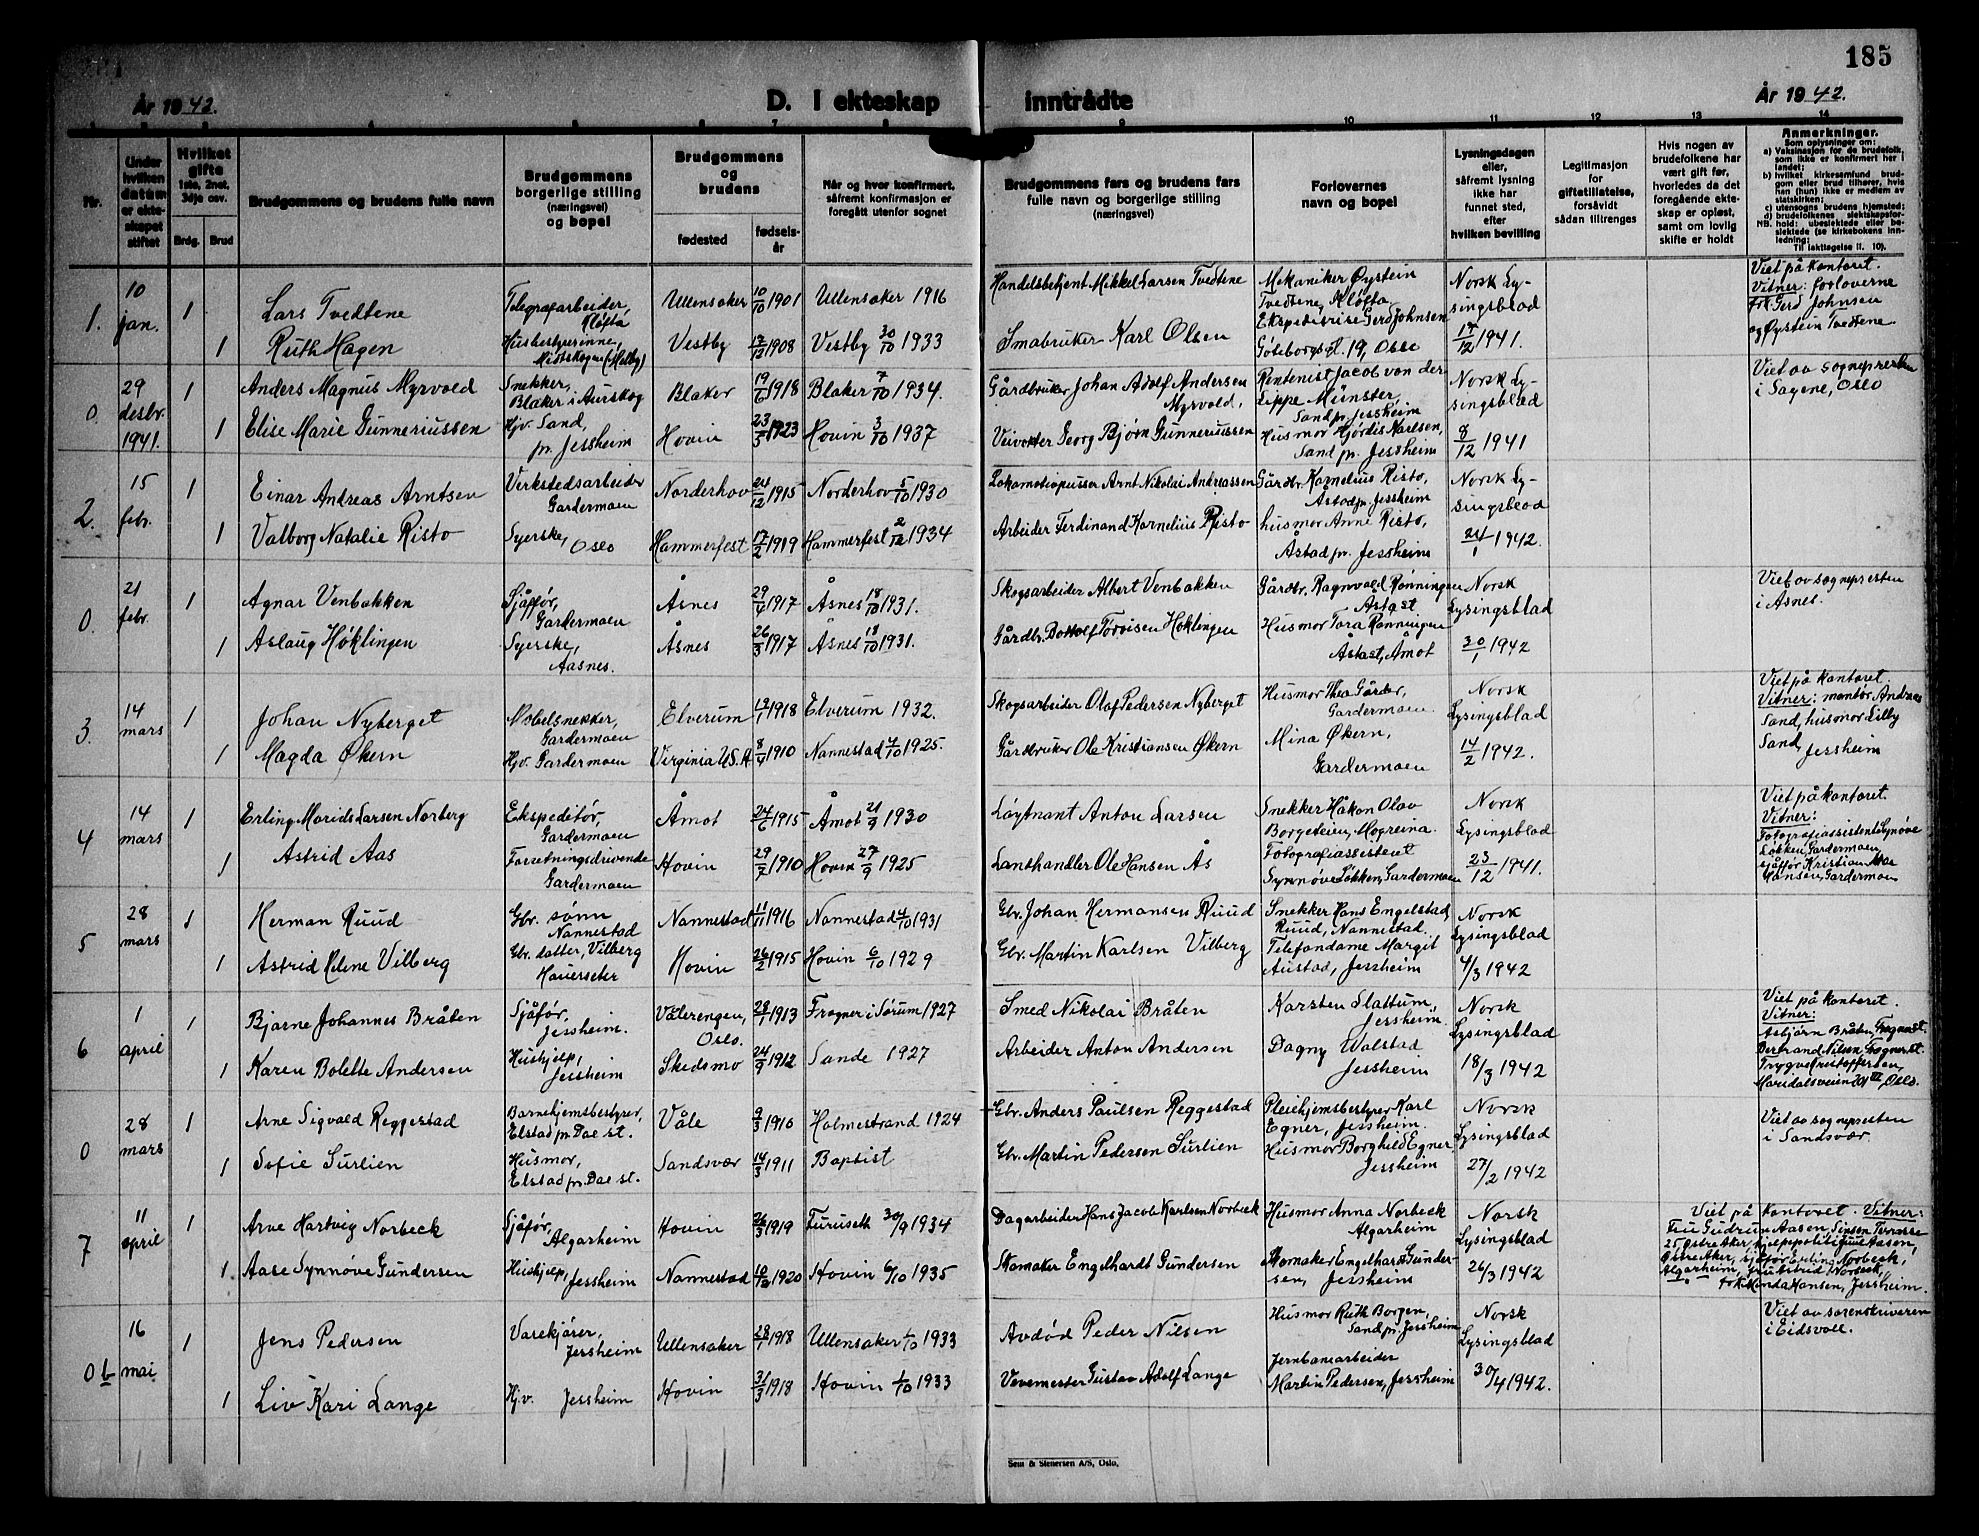 185
År 1942.
D. I ekteskap inntrådte
År 1942.
1 2 3 4 5 6 7 8 9 10 11 12 13 14
Nr.
Under hvilken datum er ekteskapet stiftet
Hvilket gifte 1ste, 2net, 3dje osv.
Brdg. Brud
Brudgommens og brudens fulle navn
Brudgommens borgerlige stilling (næringsvei) og bopel
Brudgommens og brudens
fødested
fødselsår
Når og hvor konfirmert, såfremt konfirmasjon er foregått utenfor sognet
Brudgommens fars og brudens fars fulle navn og borgerlige stilling (næringsvei)
Forlovernes navn og bopel
Lysningsdagen eller, såfremt lysning ikke har funnet sted, efter hvilken bevilling
Legitimasjon for giftetillatelse, forsåvidt sådan tiltrenges
Hvis nogen av brudefolkene har vært gift før, hvorledes da det foregående ekteskap er opløst, samt om lovlig skifte er holdt
Anmerkninger.
Som oplysninger om:
a) Vaksinasjon for de brudefolk, som ikke er konfirmert her i landet;
b) hvilket kirkesamfund brudgom eller brud tilhører, hvis han (hun) ikke er medlem av statskirken;
c) utensogns brudens hjemsted;
d) brudefolkenes slektskapsforhold: ubeslektede eller beslektede (se kirkebokens innledning;
NB.
Til iakttagelse II. 10).
1. 10 jan.
1 Lars Tvedtene
Telegrafarbeider, Kløfta
Ullensaker 10/10 1901 Ullensaker 1916
Handelsbetjent Mikkel Larsen Tvedtene
Mekaniker Øystein Tvedtene, Kløfta,
Norsk Lysingsblad 17/12 1941.
Viet på kontoret.
Vitner: forloverne
frk. Gerd Johnsen
og Øystein Tvedtene.
1 Ruth Hagen
Husbestyrerinne, Midtskogen (Melby)
Vestby 1908 Vestby 30/10 1933
Småbruker Karl Olsen
Ekspeditrise Gerd Johnsen Göteborgsgt. 19, Oslo
0. 29 desbr. 1941.
1 Anders Magnus Myrvold
Snekker, Blaker i Aurskog
Blaker 19/6 1918 Blaker 7/10 1934.
Gårdbruker Johan Adolf Andersen Myrvold,
Rentenist Jacob von der Lippe Münster, Sand pr. Jessheim
Norsk Lysingsblad 8/12 1941
Viet av sognepresten
i Sagene, Oslo
1 Elise Marie Gunneriussen
Hjv. Sand, pr. Jessheim
Hovin 23/3 1923 Hovin 3/10 1937
Veivokter Georg Bjørn Gunneriussen
Husmor Hjørdis Karlsen, Sand pr. Jessheim
2. 15 febr.
1 Einar Andreas Arntsen
Verkstedsarbeider Gardermoen
Norderhov 24/12 1915 Norderhov 5/10 1930
Lokomotivpusser Arnt Nikolai Andreassen
Gårdbr. Kornelius Risto, Åstad pr. Jessheim
Norsk Lysingsblad 24/1 1942.
1 Valborg Natalie Risto
Syerske, Oslo
Hammerfest 17/2 1919 Hammerfest 2/12 1934
Arbeider Ferdinand Kornelius Risto
husmor Anne Risto, Åstad pr. Jessheim
0. 21 febr.
1 Agnar Venbakken
Sjåffør, Gardermoen
Åsnes 29/4 1917 Åsnes 18/10 1931.
Skogsarbeider Albert Venbakken
Gårdbr. Ragnvald Rønningen Åstast
Norsk Lysingsblad 30/1 1942
Viet av sognepresten
i Åsnes.
1 Aslaug Høklingen
Syerske, Aasnes.
Åsnes 26/3 1917 Åsnes 18/10 1931.
Gårdbr. Bottolf Torvisen Høklingen
Husmor Tora Rønningen Åstast, Åmot
3. 14 mars
1 Johan Nyberget
Møbelsnekker, Gardermoen
Elverum 1918 Elverum 1932.
Skogsarbeider Olaf Pedersen Nyberget
Husmor Thea Gårder, Gardermoen.
Norsk Lysingsblad 14/2 1942.
Viet på kontoret.
Vitner: montør Andreas
Sand, husmor Lilly
Sand, Jessheim
1 Magda Økern
Hjv. Gardermoen
Virginia U.S.A 8/4 1910 Nannestad 4/10 1925.
Gårdbruker Ole Kristiansen Økern
Mina Økern, Gardermoen
4 14 mars
1 Erling Morids Larsen Norberg
Ekspeditør, Gardermoen
Åmot 24/6 1915 Åmot 21/9 1930
Løytnant Anton Larsen
Snekker Håkon Olav Borgeteien, Mogreina.
Norsk Lysingsblad 23/12 1941.
Viet på kontoret.
Vitner:
Fotografiassistent Synøve
Løkken, Gardermoen,
sjåffør Kristian
Hansen, Gardermoen
1 Astrid Aas
Forretningsdrivende Gardermoen
Hovin 29/7 1910 Hovin 27/9 1925
Lanthandler Ole Hansen Ås
Fotografiassistent Synnøve Løkken, Gardermoen
5 28 mars
1 Herman Ruud
Gbr. sønn Nannestad
Nannestad 11/11 1916 Nannestad 4/10 1931
Gbr. Johan Hermansen Ruud
Snekker Hans Engelstad, Ruud, Nannestad.
Norsk Lysingsblad 4/3 1942
1 Astrid Helene Vilberg
Gbr. datter, Vilberg Hauerseter
Hovin 26/2 1915 Hovin 6/10 1929
Gbr. Martin Karlsen Vilberg
Telefondame Margit Austad, Jessheim
6 1 april
1 Bjarne Johannes Bråten
Sjåfør, Jessheim.
Vålerengen, Oslo. 28/1 1913 Frogner i Sørum 1927
Smed Nikolai Bråten
Karsten Slattum, Jessheim.
Norsk Lysingsblad 18/3 1942
Viet på kontoret.
Vitner:
Asbjørn Bråten, Frogner st.
Bertrand Nilsen, Frogner st.
Trygve Kristoffersen,
Maridalsveien, Oslo.
1 Karen Bolette Andersen
Hushjelp, Jessheim
Skedsmo 24/9 1912 Sande 1927
Arbeider Anton Andersen
Dagny Walstad Jessheim
0 28 mars
1 Arne Sigvald Reggestad
Barnehjemsbestyrer, Elstad pr. Dal st.
Våle 9/3 1910 Holmestrand 1924
Gbr. Anders Paulsen Reggestad
Pleiehjemsbestyrer Karl Egner, Jessheim.
Norsk Lysingsblad 27/2 1942
Viet av sognepresten
i Sandsvær.
1 Sofie Surlien
Husmor, Elstad pr. Dal st.
Sandsvær 14/3 1911 Baptist
Gbr. Martin Pedersen Surlien
Husmor Borghild Egner Jessheim
7 11 april
1 Arve Hartvig Norbeck
Sjåfør, Algarheim
Hovin 26/3 1919 Furuseth 30/9 1934
Dagarbeider Hans Jacob Karlsen Norbeck
Husmor Anna Norbeck Algarheim
Norsk Lysingsblad 26/3 1942
Viet på kontoret. Vitner:
Fru Gudrun Aasen, Sinsen Terrasse
25 Østre Aker, hjelpepoliti Juul Aasen,
Østre Aker, sjåfør Erling Norbeck,
Algarheim, fru Astrid Norbeck,
frk. Hansen, Jessheim.
1. Aase Synnøve Gundersen
Hushjelp, Jessheim
Nannestad 1920 Hovin 6/10 1935
Skomaker Engelhardt Gundersen
Skomaker Engelhardt Gundersen, Jessheim
0 b 16 mai
1 Jens Pedersen
Varekjører, Jessheim
Ullensaker 28/1 1918 Ullensaker 1/10 1933
Avdød Peder Nilsen
Husmor Ruth Borgen, Sand pr. Jessheim
Norsk Lysingsblad 30/4 1942.
Viet av sorenskriveren
i Eidsvoll.
1 Liv Kari Lange
Hj.v. Jessheim
Hovin 31/3 1918 Hovin 1/10 1933
Vevemester Gustav Adolf Lange
Jernbanearbeider Martin Pedersen, Jessheim
Sem & Stenersen A/S, Oslo.